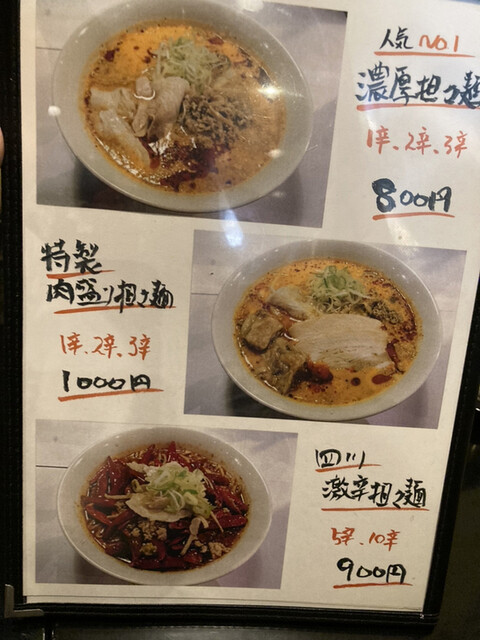 人気 No.1
濃厚担々麺
1辛、2辛、3辛
800円
特製
肉盛り担々麺
1辛、2辛、3辛
1000円
四川
激辛担々麺
5辛、10辛
900円